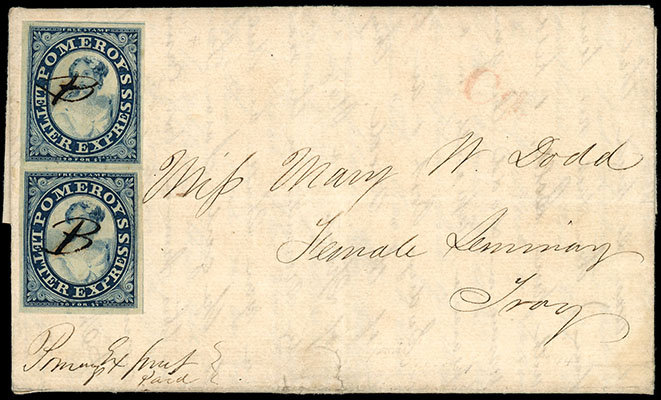 FREE STAMP
POMEROY'S
LETTER EXPRESS
20 FOR $1
B
FREE STAMP
POMEROY'S
LETTER EXPRESS
20 FOR $1
B
Miſs Mary W. Dodd
Female Seminay
Troy
Paid